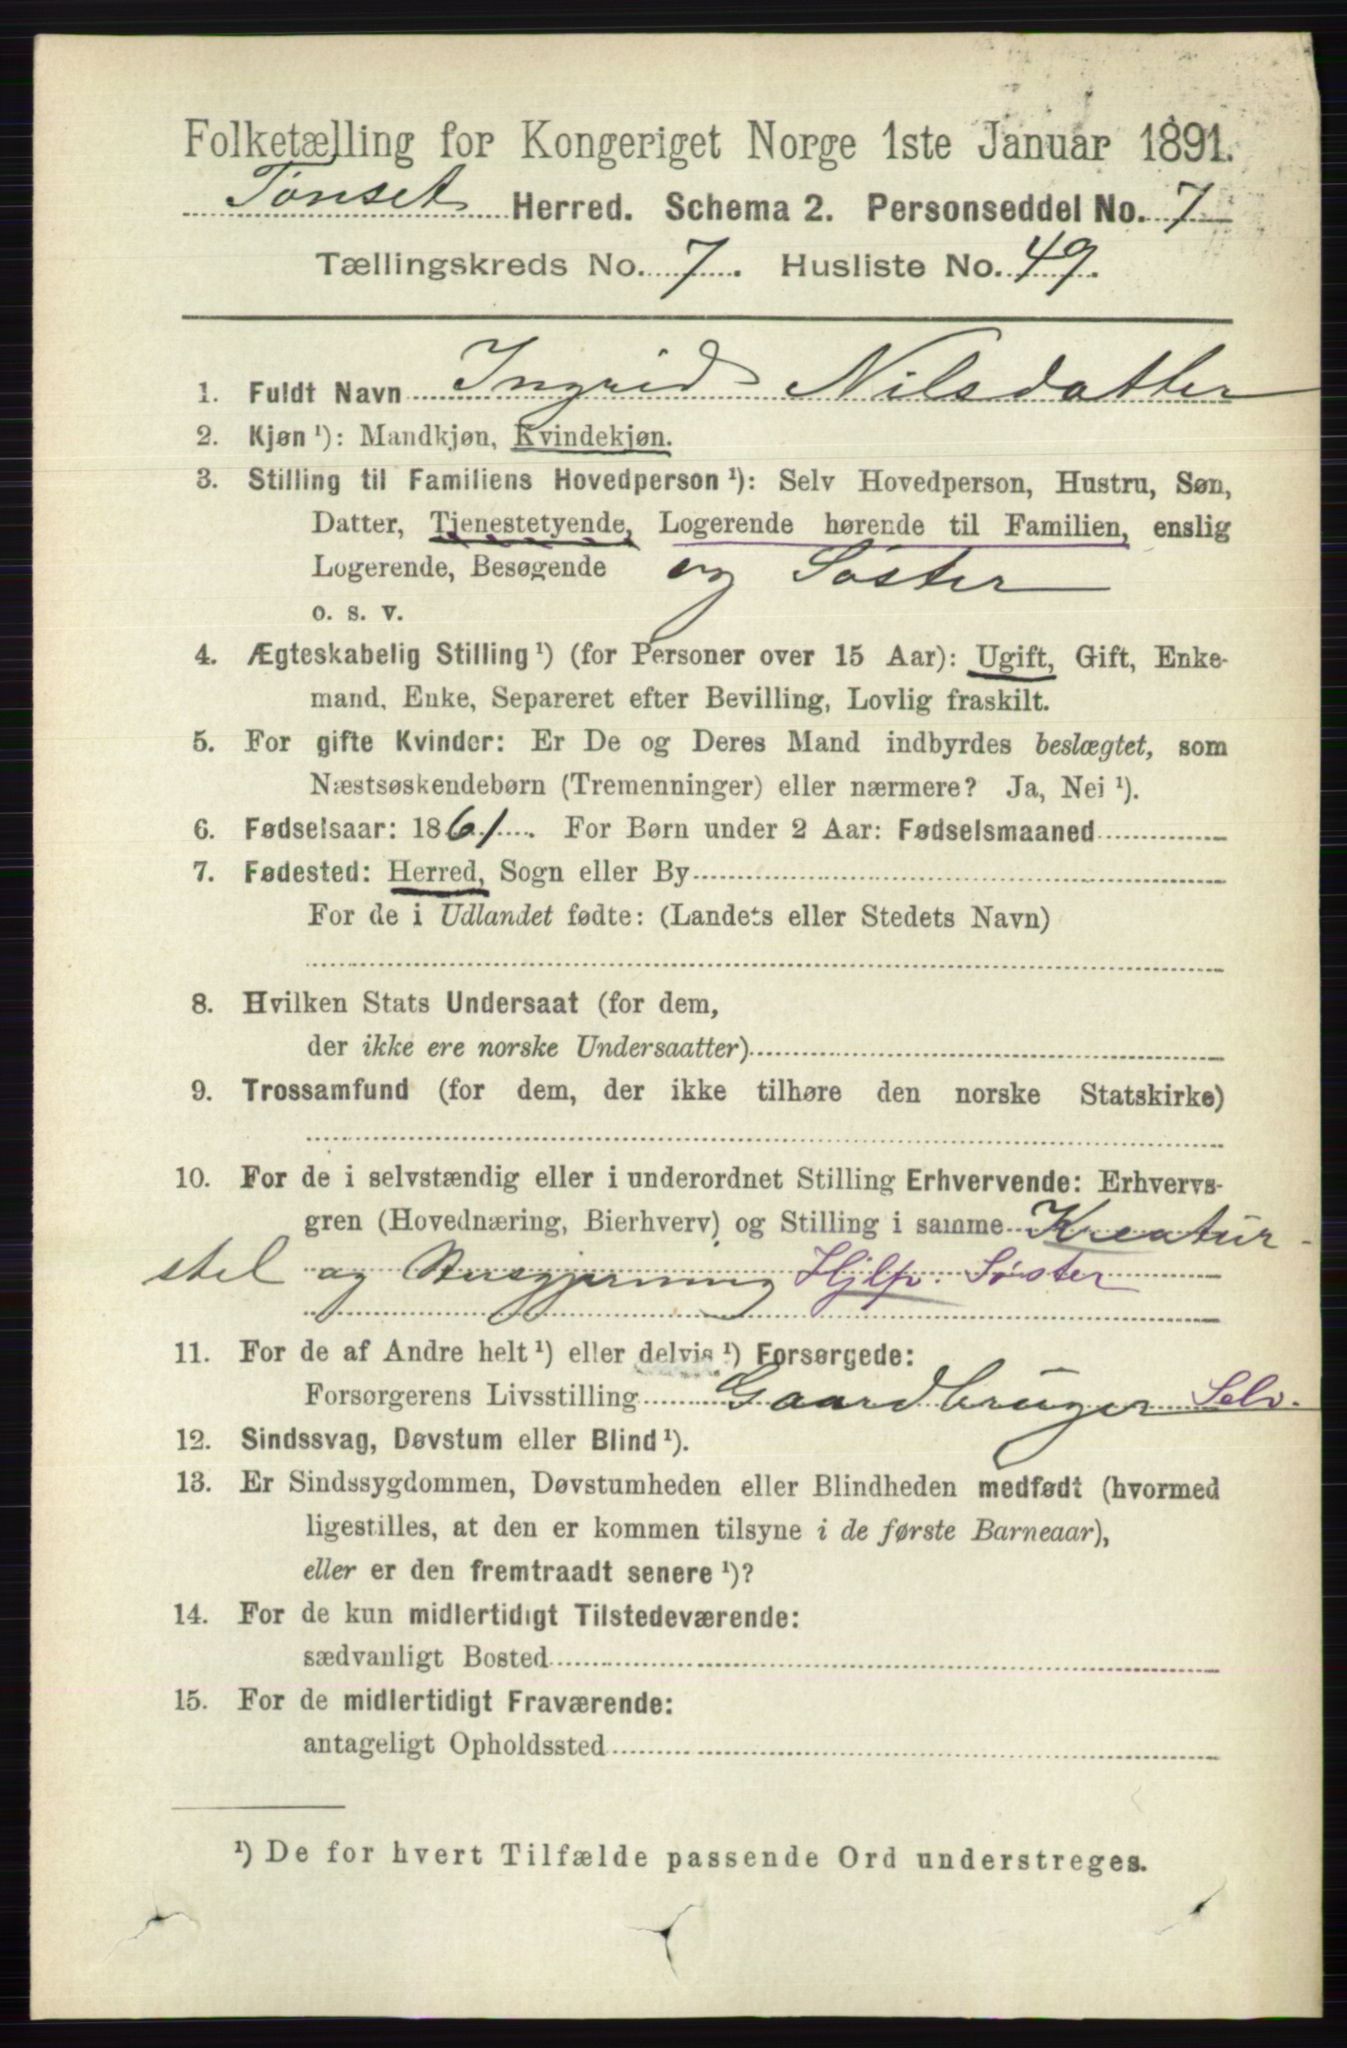 Folketælling for Kongeriget Norge 1ste Januar 1891.
Tønset Herred. Schema 2. Personseddel No. 7
Tællingskreds No. 7. Husliste No. 49.
1. Fuldt Navn Ingrid Nilsdatter
2. Kjøn ¹): Mandkjøn, Kvindekjøn.
3. Stilling til Familiens Hovedperson ¹): Selv Hovedperson, Hustru, Søn,
Datter, Tjenestetyende, Logerende hørende til Familien, enslig
Logerende, Besøgende og Søster
o. s. v.
4. Ægteskabelig Stilling ¹) (for Personer over 15 Aar): Ugift, Gift, Enke-
mand, Enke, Separeret efter Bevilling, Lovlig fraskilt.
5. For gifte Kvinder: Er De og Deres Mand indbyrdes beslægtet, som
Næstsøskendebørn (Tremenninger) eller nærmere? Ja, Nei ¹).
6. Fødselsaar: 1861. For Børn under 2 Aar: Fødselsmaaned
7. Fødested: Herred, Sogn eller By
For de i Udlandet fødte: (Landets eller Stedets Navn)
8. Hvilken Stats Undersaat (for dem,
der ikke ere norske Undersaatter)
9. Trossamfund (for dem, der ikke tilhøre den norske Statskirke)
10. For de i selvstændig eller i underordnet Stilling Erhvervende: Erhvervs-
gren (Hovednæring, Bierhverv) og Stilling i samme Kreatur-
stel og Husgjerning Hjlp. Søster
11. For de af Andre helt ¹) eller delvis ¹) Forsørgede:
Forsørgerens Livsstilling Gaardbruger Selv.
12. Sindssvag, Døvstum eller Blind ¹).
13. Er Sindssygdommen, Døvstumheden eller Blindheden medfødt (hvormed
ligestilles, at den er kommen tilsyne i de første Barneaar),
eller er den fremtraadt senere ¹)?
14. For de kun midlertidigt Tilstedeværende:
sædvanligt Bosted
15. For de midlertidigt Fraværende:
antageligt Opholdssted
¹) De for hvert Tilfælde passende Ord understreges.